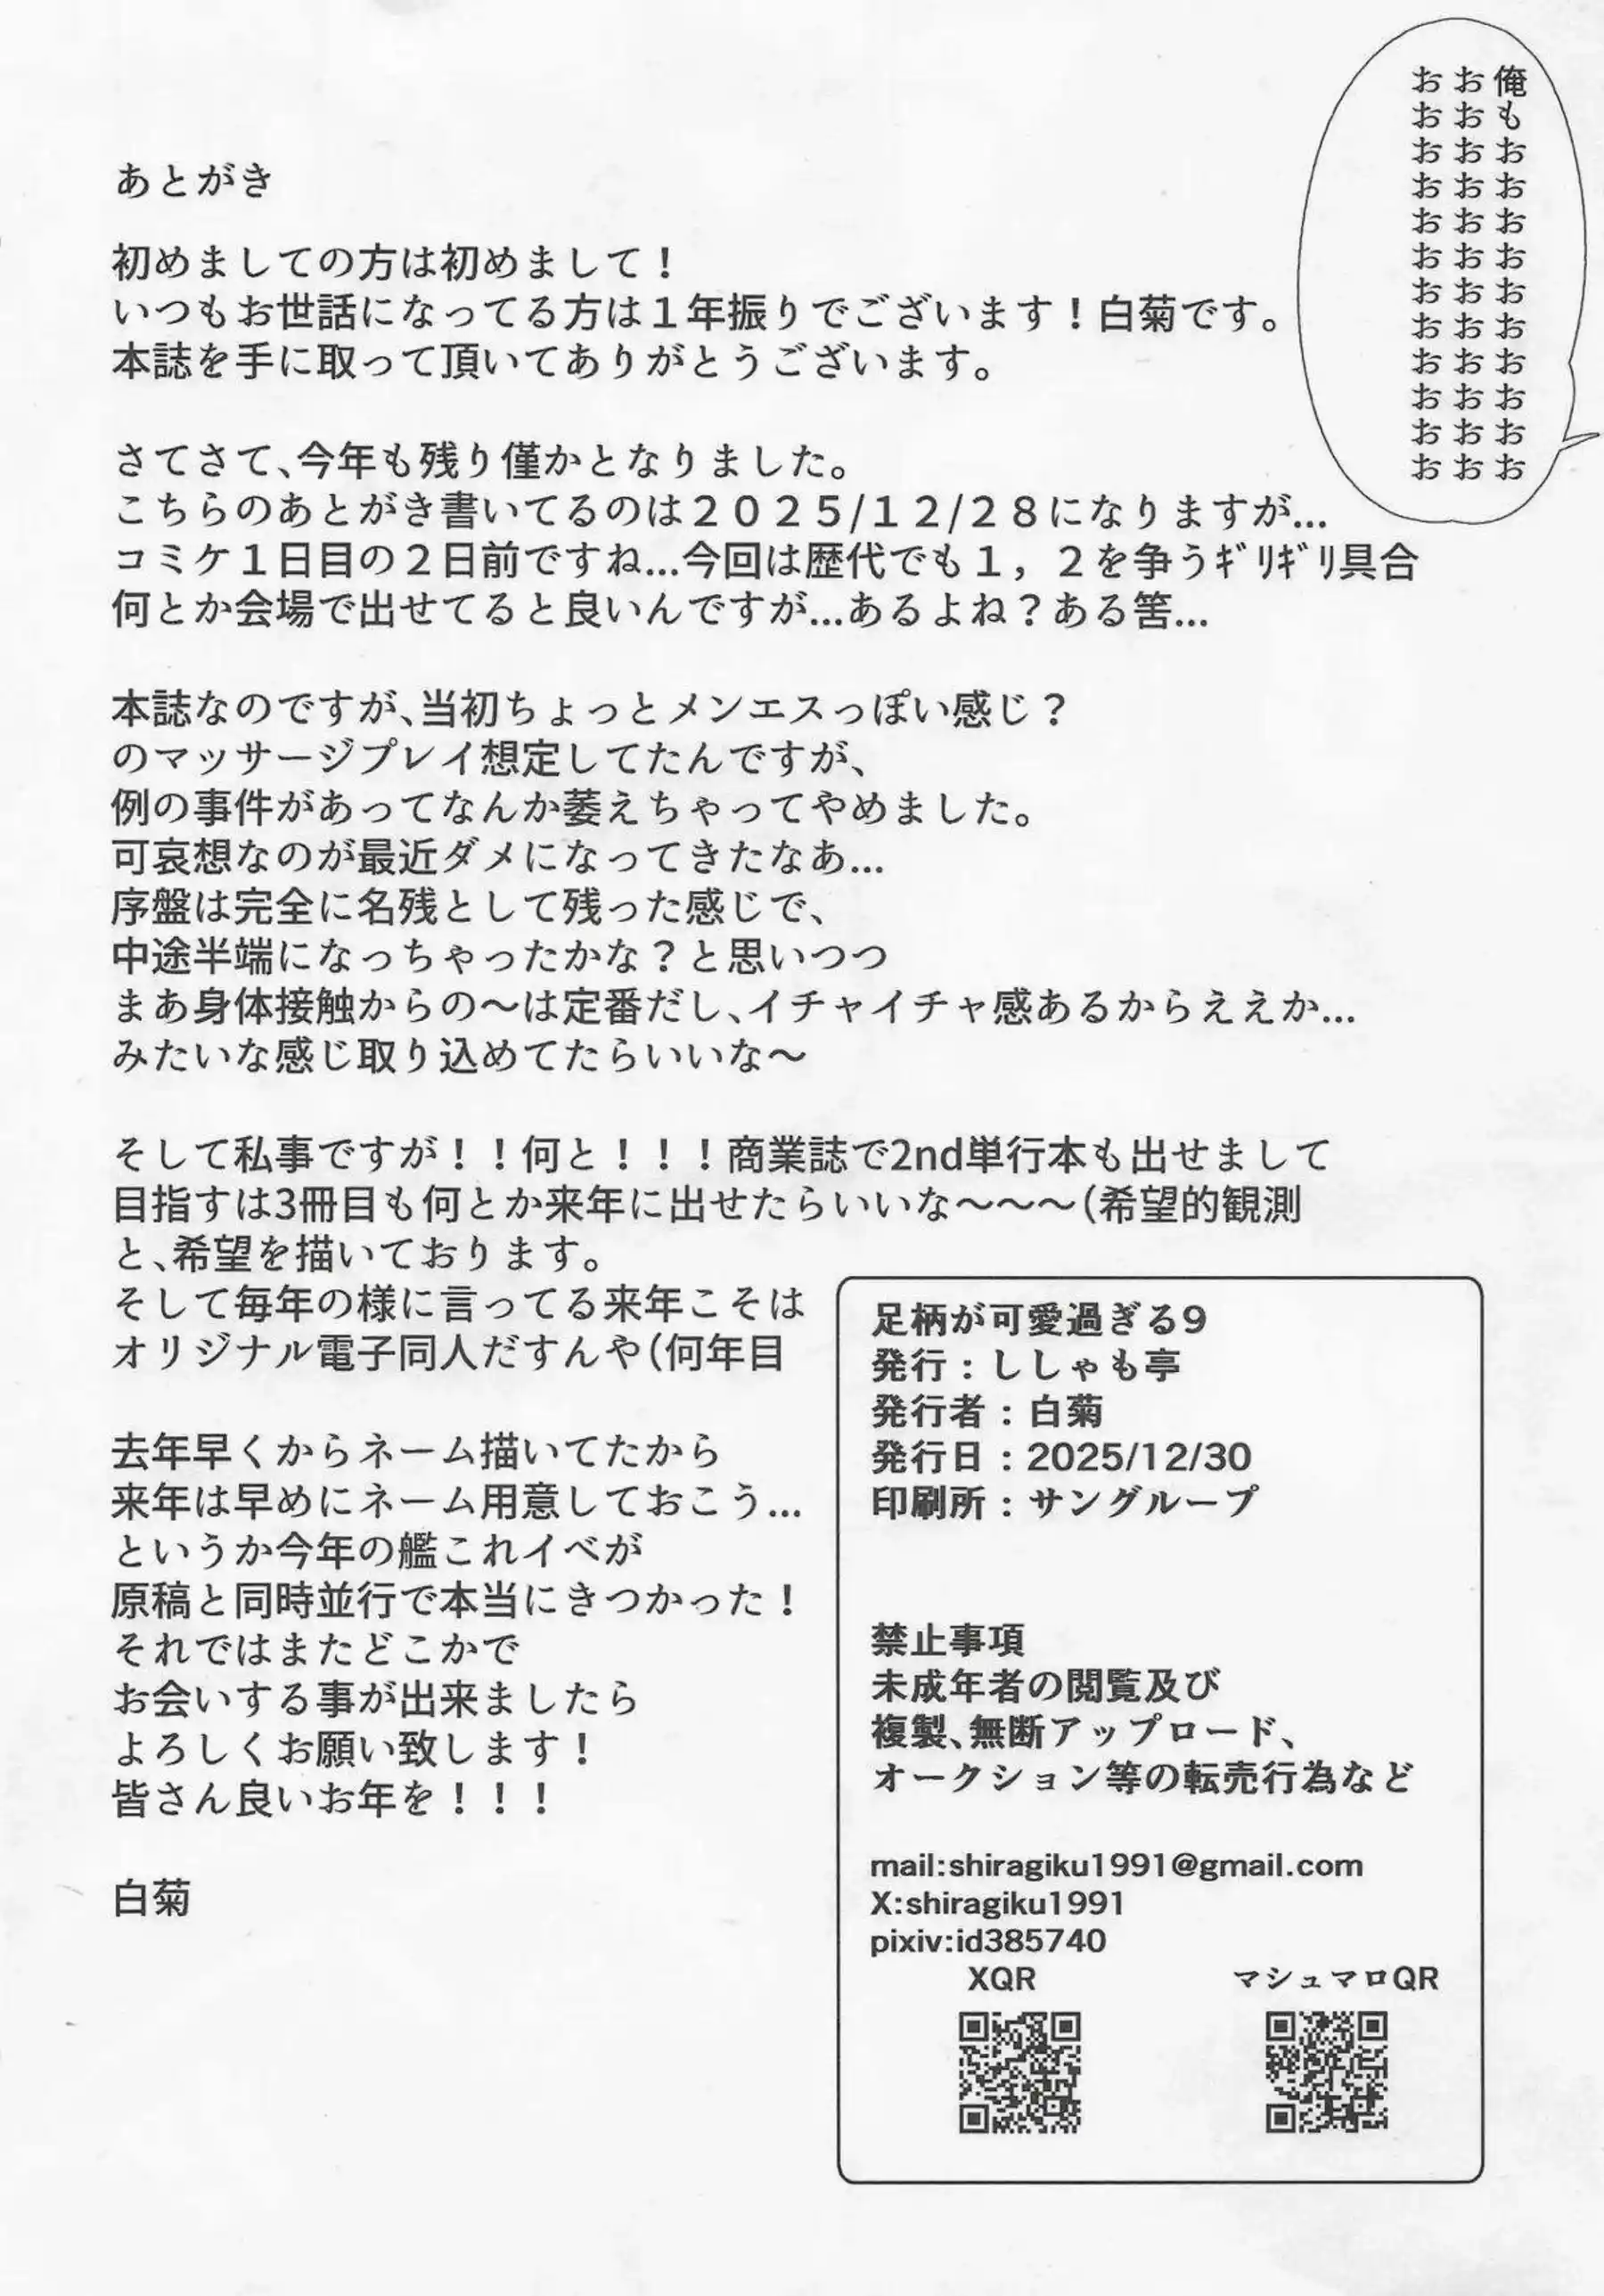 俺もおおおおおおおおおお
おおおおおおおおおおおお
おおおおおおおおおおおお
あとがき
初めましての方は初めまして！
いつもお世話になってる方は１年振りでございます！白菊です。
本誌を手に取って頂いてありがとうございます。
さてさて、今年も残り僅かとなりました。
こちらのあとがき書いてるのは２０２５/１２/２８になりますが...
コミケ１日目の２日前ですね...今回は歴代でも１，２を争うｷﾞﾘｷﾞﾘ具合
何とか会場で出せてると良いんですが...あるよね？ある筈...
本誌なのですが、当初ちょっとメンエスっぽい感じ？
のマッサージプレイ想定してたんですが、
例の事件があってなんか萎えちゃってやめました。
可哀想なのが最近ダメになってきたなあ...
序盤は完全に名残として残った感じで、
中途半端になっちゃったかな？と思いつつ
まあ身体接触からの～は定番だし、イチャイチャ感あるからええか...
みたいな感じ取り込めてたらいいな～
そして私事ですが！！何と！！！商業誌で2nd単行本も出せまして
目指すは3冊目も何とか来年に出せたらいいな～～～(希望的観測
と、希望を描いております。
そして毎年の様に言ってる来年こそは
オリジナル電子同人だすんや(何年目
去年早くからネーム描いてたから
来年は早めにネーム用意しておこう...
というか今年の艦これイベが
原稿と同時並行で本当にきつかった！
それではまたどこかで
お会いする事が出来ましたら
よろしくお願い致します！
皆さん良いお年を！！！
白菊
足柄が可愛過ぎる9
発行：ししゃも亭
発行者：白菊
発行日：2025/12/30
印刷所：サングループ
禁止事項
未成年者の閲覧及び
複製、無断アップロード、
オークション等の転売行為など
mail:shiragiku1991@gmail.com
X:shiragiku1991
pixiv:id385740
XQR
マシュマロQR